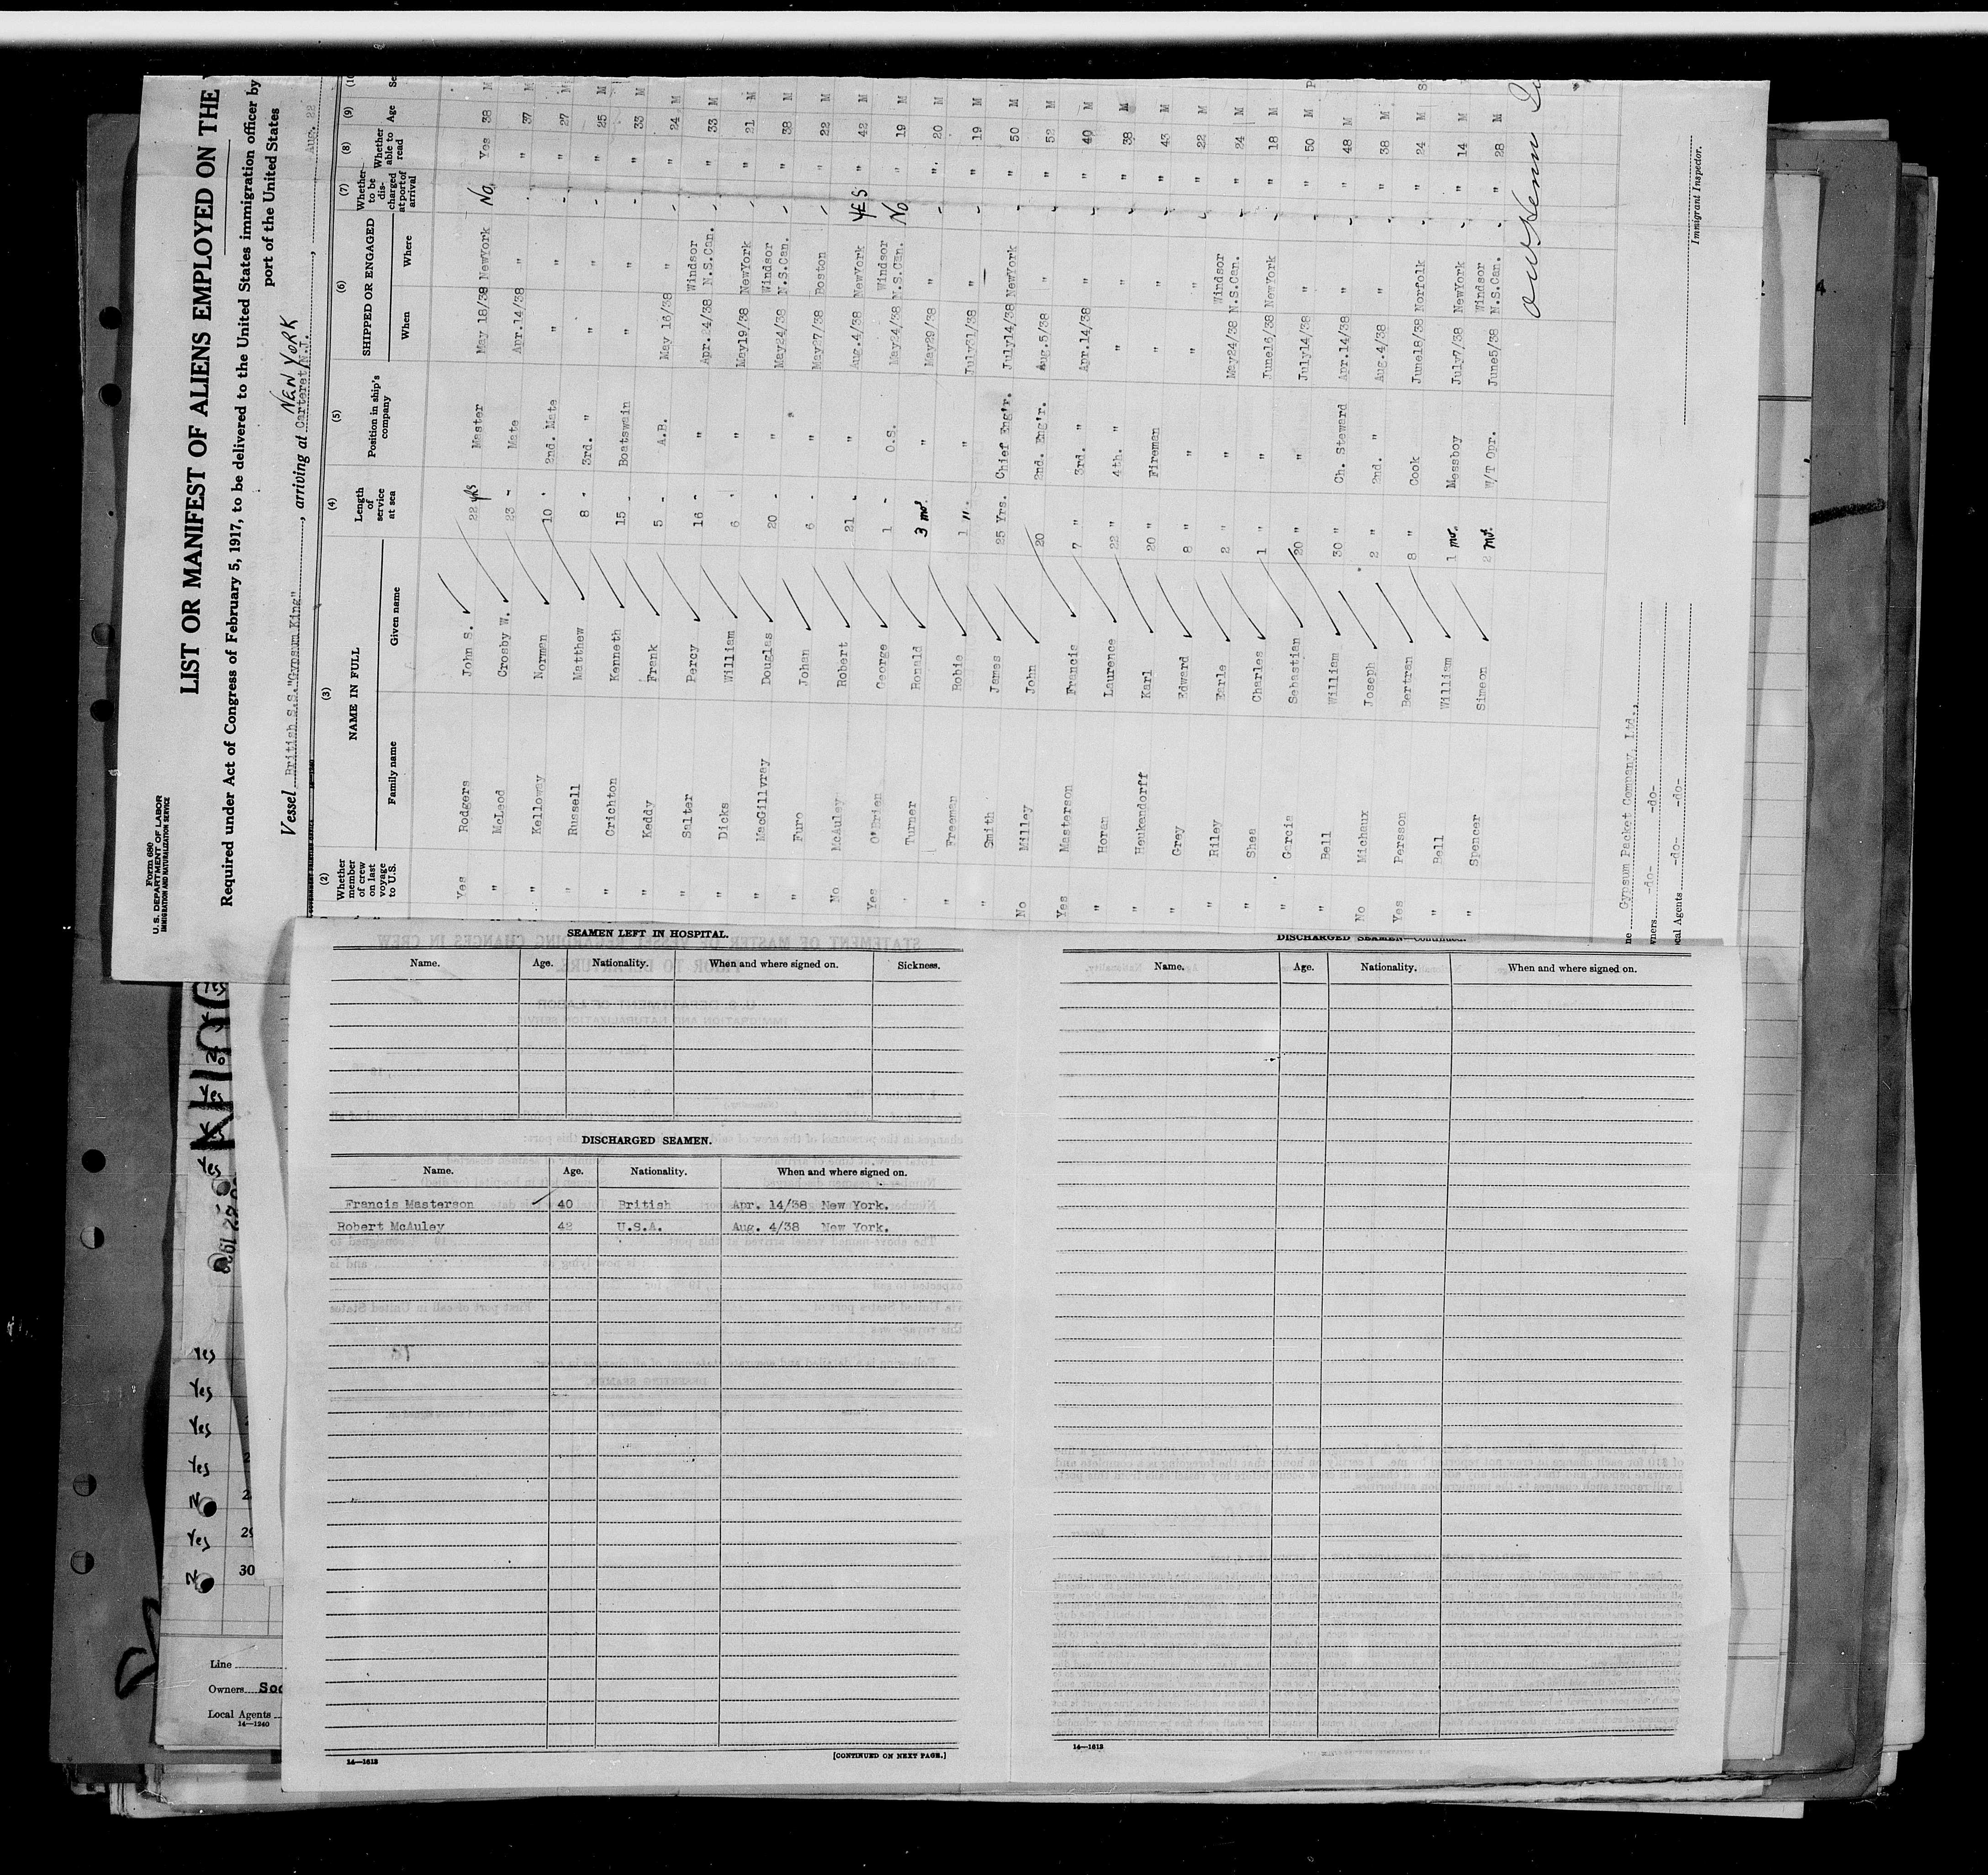 Form 680
U. S. DEPARTMENT OF LABOR
IMMIGRATION AND NATURALIZATION SERVICE
LIST OR MANIFEST OF ALIENS EMPLOYED ON THE
Required under Act of Congress of February 5, 1917, to be delivered to the United States immigration officer by
port of the United States
NEW YORK
Vessel British S.S."Gypsum King", arriving at Carteret N.J., Aug. 22
(2) (3) (4) (5) (6) (7) (8) (9)
Whether member of crew on last voyage to U.S. NAME IN FULL Length of service at sea Position in ship's company SHIPPED OR ENGAGED Whether to be discharged at port of arrival Whether able to read Age
Family name Given name When Where
Yes Rodgers John S. 22 yrs Master May 18/38 NewYork No Yes 38 M
" McLeod Crosby W. 23 - Mate Apr.14/38 " - " 37 M
" Kelloway Norman 10 - 2nd. Mate " " - " 27 M
" Russell Matthew 8 - 3rd. " " " - " 25 M
" Crichton Kenneth 15 - Boatswain " " - " 33 M
" Keddy Frank 5 - A.B. May 16/38 " - " 24 M
" Salter Percy 16 - " Apr.24/38 Windsor N.S.Can. - " 33 M
" Dicks William 6 - " May19/38 NewYork - " 21 M
" MacGillvray Douglas 20 - " May24/38 Windsor N.S.Can. - " 38 M
" Furo Johan 6 - " May27/38 Boston - " 22 M
No McAuley Robert 21 - " Aug.4/38 NewYork YES " 42 M
Yes O'Brien George 1 - O.S. May24/38 Windsor N.S.Can. No " 19 M
" Turner Ronald 3 mo. " May29/38 " - " 20 M
" Freeman Robie 1 " " July31/38 " - " 19 M
" Smith James 25 Yrs. Chief Eng'r. July14/38 NewYork - " 50 M
No Milley John 20 2nd. Eng'r. Aug.5/38 " - " 52 M
Yes Masterson Francis 7 " 3rd. " Apr.14/38 " - " 40 M
" Horan Laurence 22 " 4th. " " " - " 38 M
" Heukendorff Karl 20 " Fireman " " - " 43 M
" Grey Edward 8 " " " " - " 22 M
" Riley Earle 2 " " May24/38 Windsor N.S.Can. - " 24 M
" Shea Charles 1 " " June16/38 NewYork - " 18 M
" Garcia Sebastian 20 " " July14/38 " - " 50 M
" Bell William 30 " Ch. Steward Apr.14/38 " - " 48 M
No Michaux Joseph 2 " 2nd. " Aug.4/38 " - " 38 M
Yes Persson Bertran 8 " Cook June18/38 Norfolk - " 24 M
" Bell William 1 mo. Messboy July7/38 NewYork - " 14 M
" Spencer Simeon 2 mo. W/T Opr. June5/38 Windsor N.S.Can. - " 28 M
Gypsum Packet Company, Ltd.,
-do- -do-
-do- -do-
Immigrant Inspector.
SEAMEN LEFT IN HOSPITAL.
Name. Age. Nationality. When and where signed on. Sickness.
DISCHARGED SEAMEN.
Name. Age. Nationality. When and where signed on.
Francis Masterson 40 British Apr. 14/38 New York.
Robert McAuley 42 U.S.A. Aug. 4/38 New York.
14—1613 [CONTINUED ON NEXT PAGE.]
DISCHARGED SEAMEN—Continued.
Name. Age. Nationality. When and where signed on.
14—1613
Yes
Yes
Yes
Yes
Yes
No
Yes 29
No 30
Line
Owners
Local Agents
14—1240